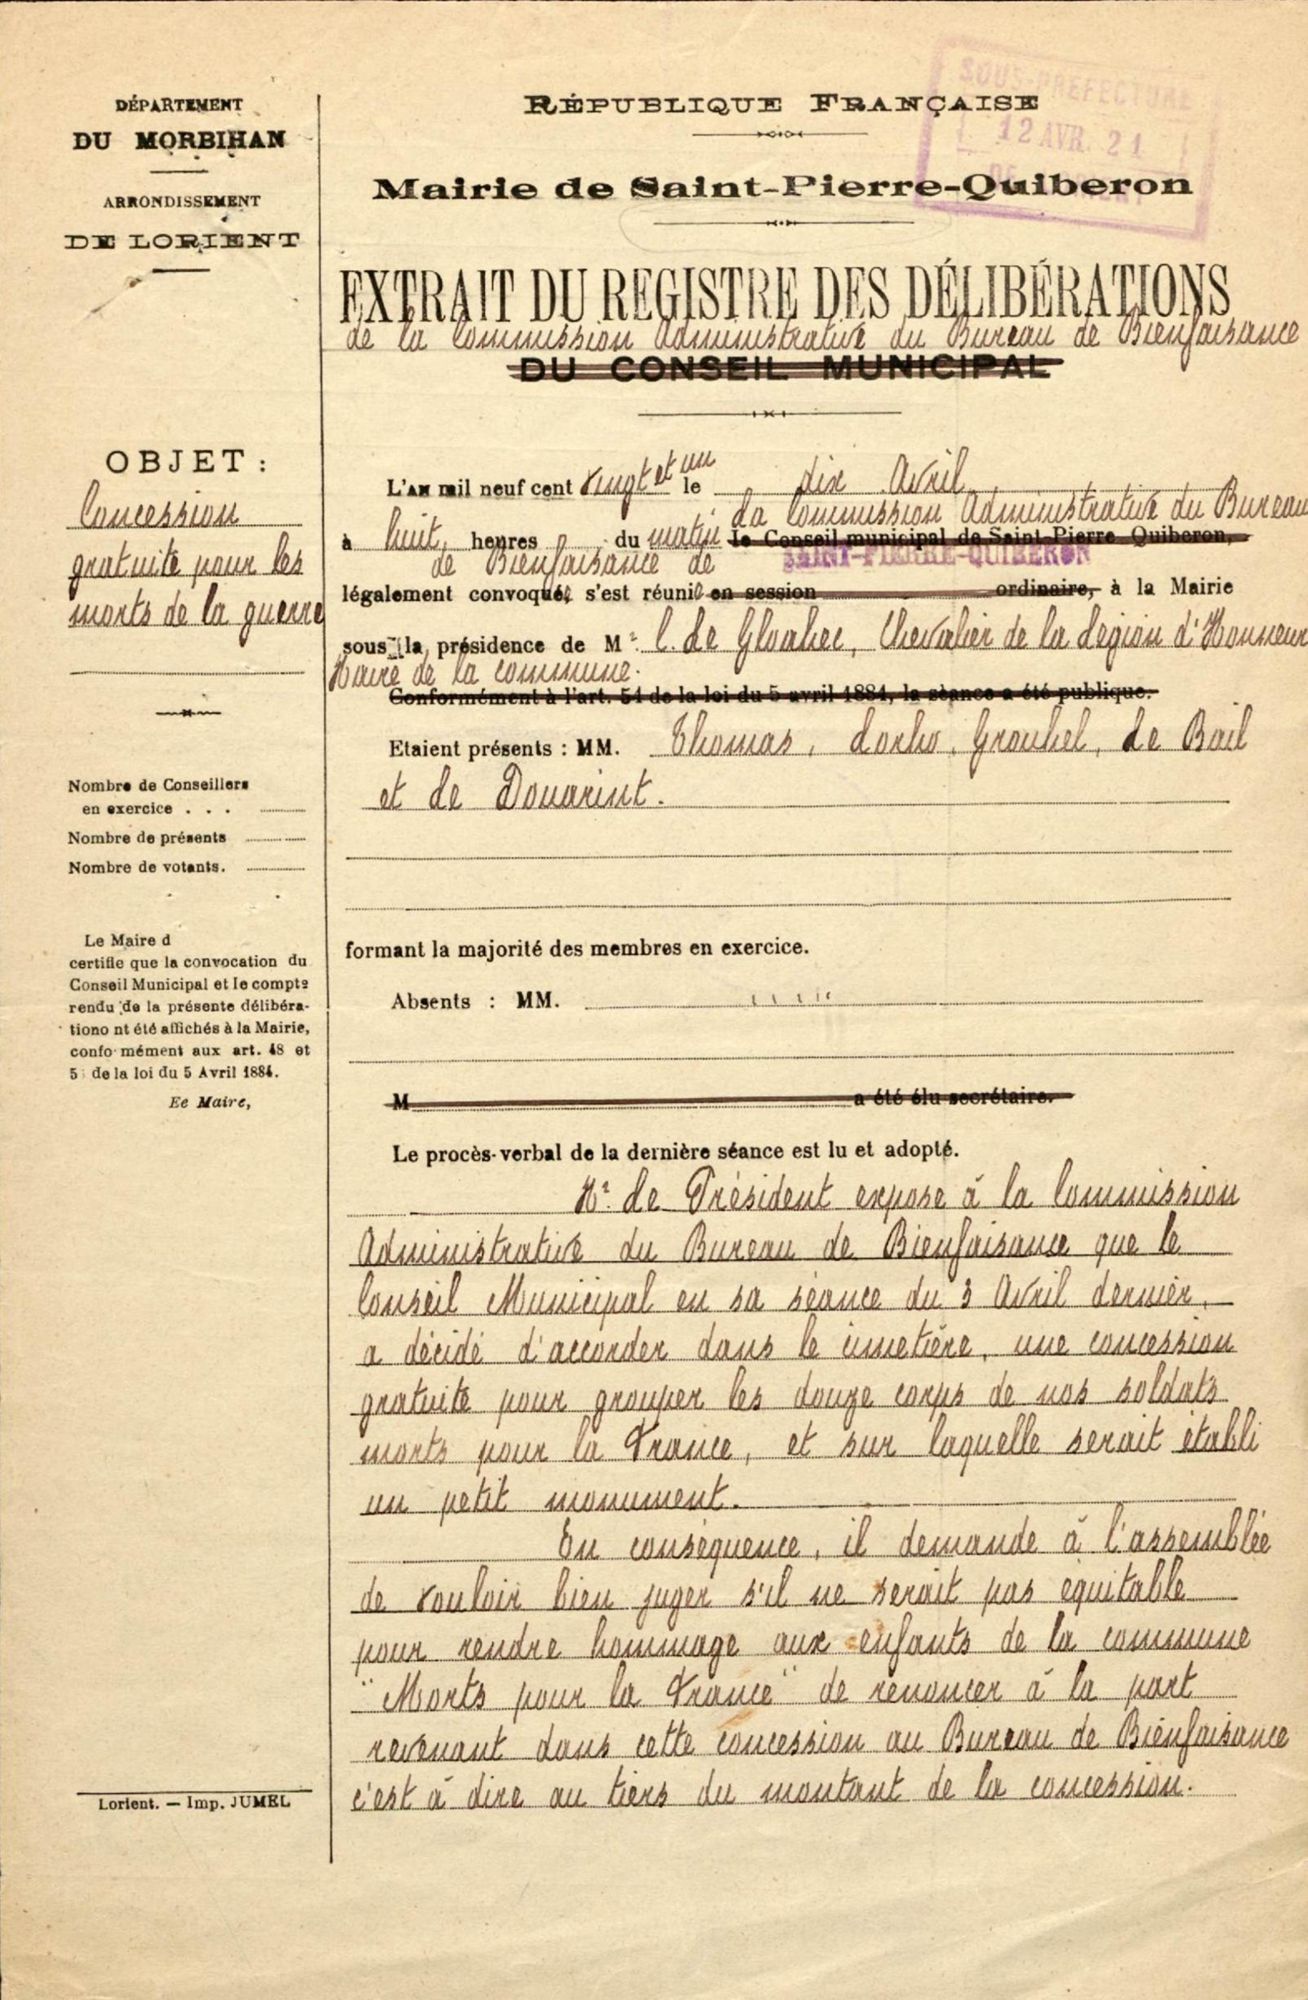 DÉPARTEMENT
DU MORBIHAN
ARRONDISSEMENT
DE LORIENT
OBJET :
Concession
gratuite pour les
morts de la guerre
Nombre de Conseillers
en exercice . . .
Nombre de présents
Nombre de votants.
Le Maire d
certifie que la convocation du
Conseil Municipal et le compte
rendu de la présente délibéra-
tiono nt été affichés à la Mairie,
confo mément aux art. 48 et
5 de la loi du 5 Avril 1884.
Ee Maire,
Lorient. — Imp. JUMEL
RÉPUBLIQUE FRANÇAISE
SOUS-PRÉFECTURE
12 AVR. 21
Mairie de Saint-Pierre-Quiberon
EXTRAIT DU REGISTRE DES DÉLIBÉRATIONS
de la Commission Administrative du Bureau de Bienfaisance
DU CONSEIL MUNICIPAL
L'AN mil neuf cent vingt et un le dix Avril
La Commission Administrative du Bureau
à huit heures du matin le Conseil municipal de Saint-Pierre Quiberon,
de Bienfaisance de SAINT-PIERRE-QUIBERON
légalement convoquée s'est réunie en session ordinaire, à la Mairie
sous la présidence de Mr. C. Le Gloahec, Chevalier de la Légion d'Honneur
Maire de la commune.
Conformément à l'art. 54 de la loi du 5 avril 1884, la séance a été publique.
Etaient présents : MM. Thomas, Lorho, Grouhel, Le Bail
et Le Douarin.
formant la majorité des membres en exercice.
Absents : MM.
M a été élu secrétaire.
Le procès-verbal de la dernière séance est lu et adopté.
Mr. Le Président expose à la Commission
Administrative du Bureau de Bienfaisance que le
Conseil Municipal en sa séance du 3 Avril dernier,
a décidé d'accorder dans le cimetière, une concession
gratuite pour grouper les douze corps de nos soldats
morts pour la France, et sur laquelle serait établi
un petit monument.
En conséquence, il demande à l'assemblée
de vouloir bien juger s'il ne serait pas équitable
pour rendre hommage aux enfants de la commune
"Morts pour la France" de renoncer à la part
revenant dans cette concession au Bureau de Bienfaisance
c'est à dire au tiers du montant de la concession.